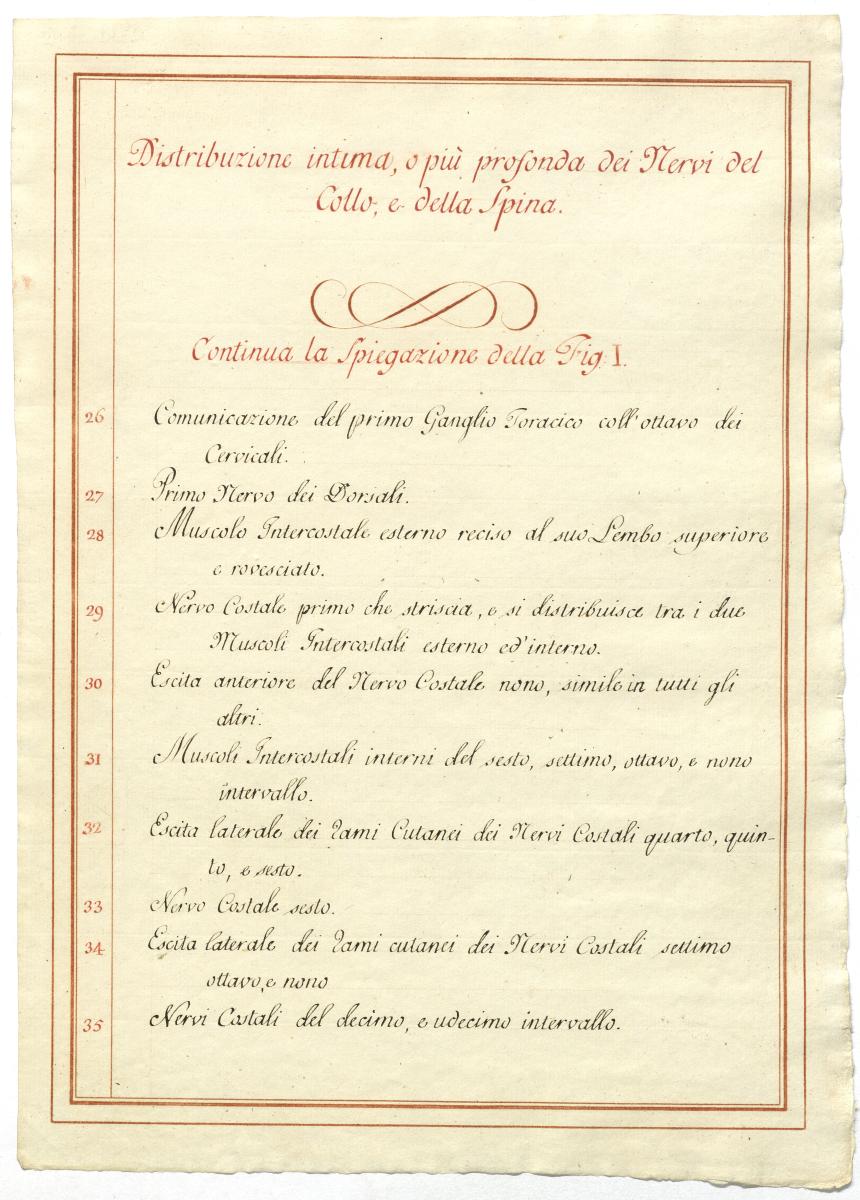 Distribuzione intima, o più profonda dei Nervi del
Collo, e della Spina.
Continua la Spiegazione della Fig. I.
26 Comunicazione del primo Ganglio Toracico coll'ottavo dei
Cervicali.
27 Primo Nervo dei Dorsali.
28 Muscolo Intercostale esterno reciso al suo Lembo superiore
e rovesciato.
29 Nervo Costale primo che striscia, e si distribuisce tra i due
Muscoli Intercostali esterno ed'interno.
30 Escita anteriore del Nervo Costale nono, simile in tutti gli
altri.
31 Muscoli Intercostali interni del sesto, settimo, ottavo, e nono
intervallo.
32 Escita laterale dei rami Cutanei dei Nervi Costali quarto, quin-
to, e sesto.
33 Nervo Costale sesto.
34 Escita laterale dei rami cutanei dei Nervi Costali settimo
ottavo, e nono
35 Nervi Costali del decimo, e udecimo intervallo.